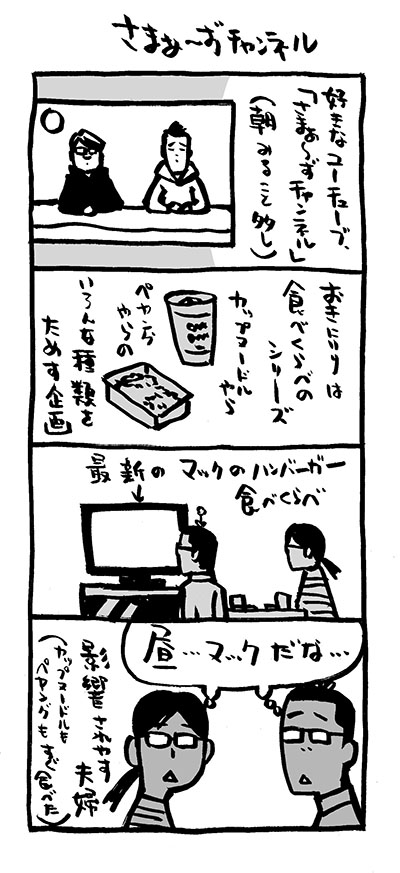 さまぁ〜ずチャンネル
好きなユーチューブ、
「さまぁ〜ずチャンネル」
(朝みること多し)
おきにいりは
食べくらべの
シリーズ
カップヌードル
やら
ペヤング
やらの
いろんな種類を
ためす企画
最新のマックのハンバーガー
食べくらべ
昼…マックだな…
影響されやす
夫婦
(カップヌードルも
ペヤングもすぐ食べた)